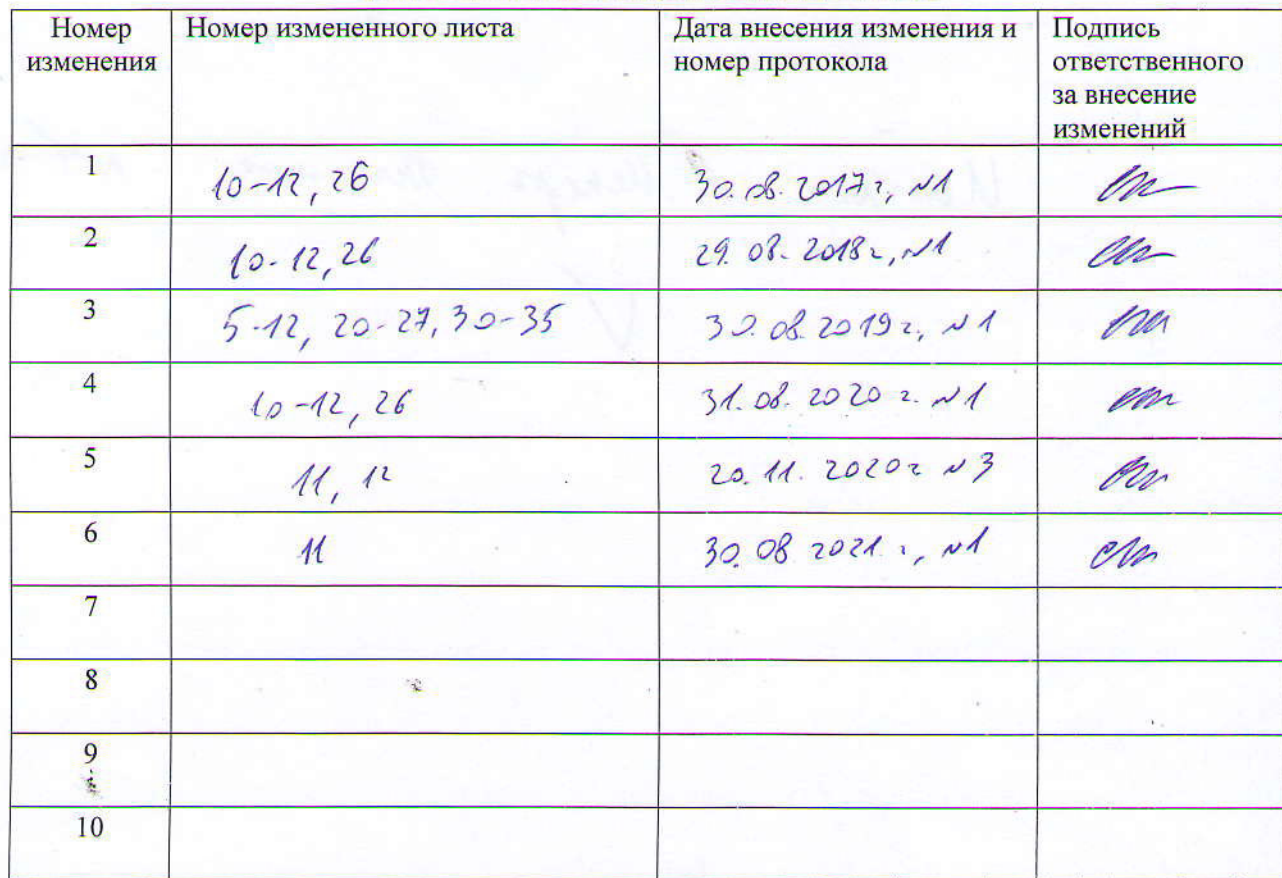 Номер изменения | Номер измененного листа | Дата внесения изменения и номер протокола | Подпись ответственного за внесение изменений
1 | 10-12, 26 | 30.08.2017г, №1
2 | 10-12, 26 | 29.08.2018г, №1
3 | 5-12, 20-27, 30-35 | 30.08.2019г, №1
4 | 10-12, 26 | 31.08.2020г. №1
5 | 11, 12 | 20.11.2020г №3
6 | 11 | 30.08 2021г, №1
7
8
9
10